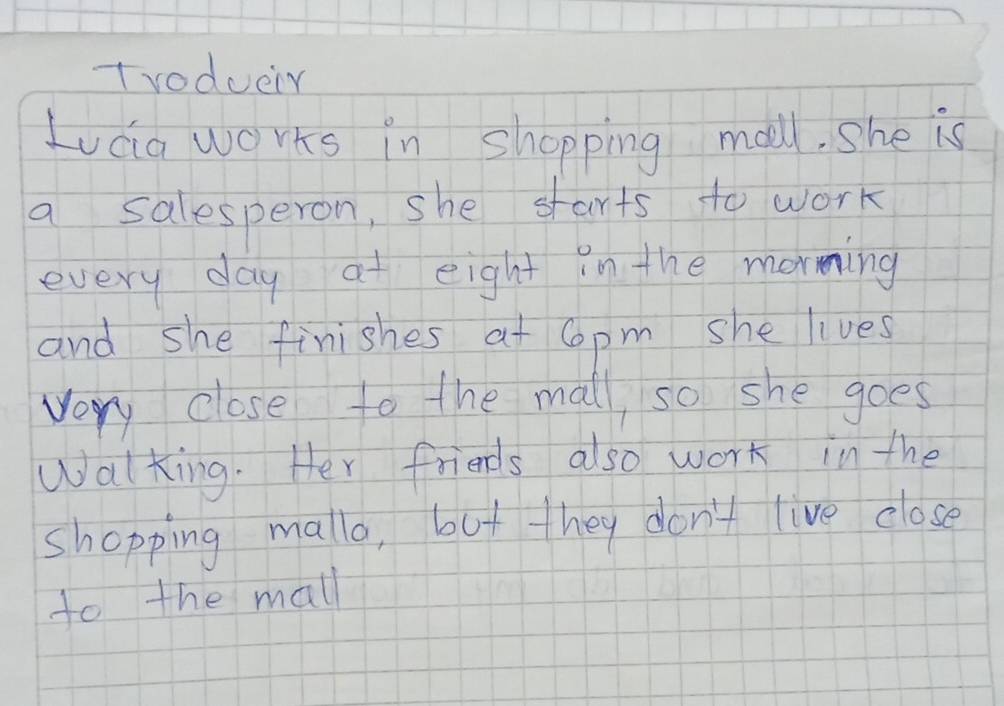 Troducir
Lucía works in shopping mall. She is
a salesperon, she starts to work
every day at eight in the morning
and she finishes at 6pm she lives
Very close to the mall, so she goes
Walking. Her friends also work in the
shopping malla, but they don't live close
to the mall